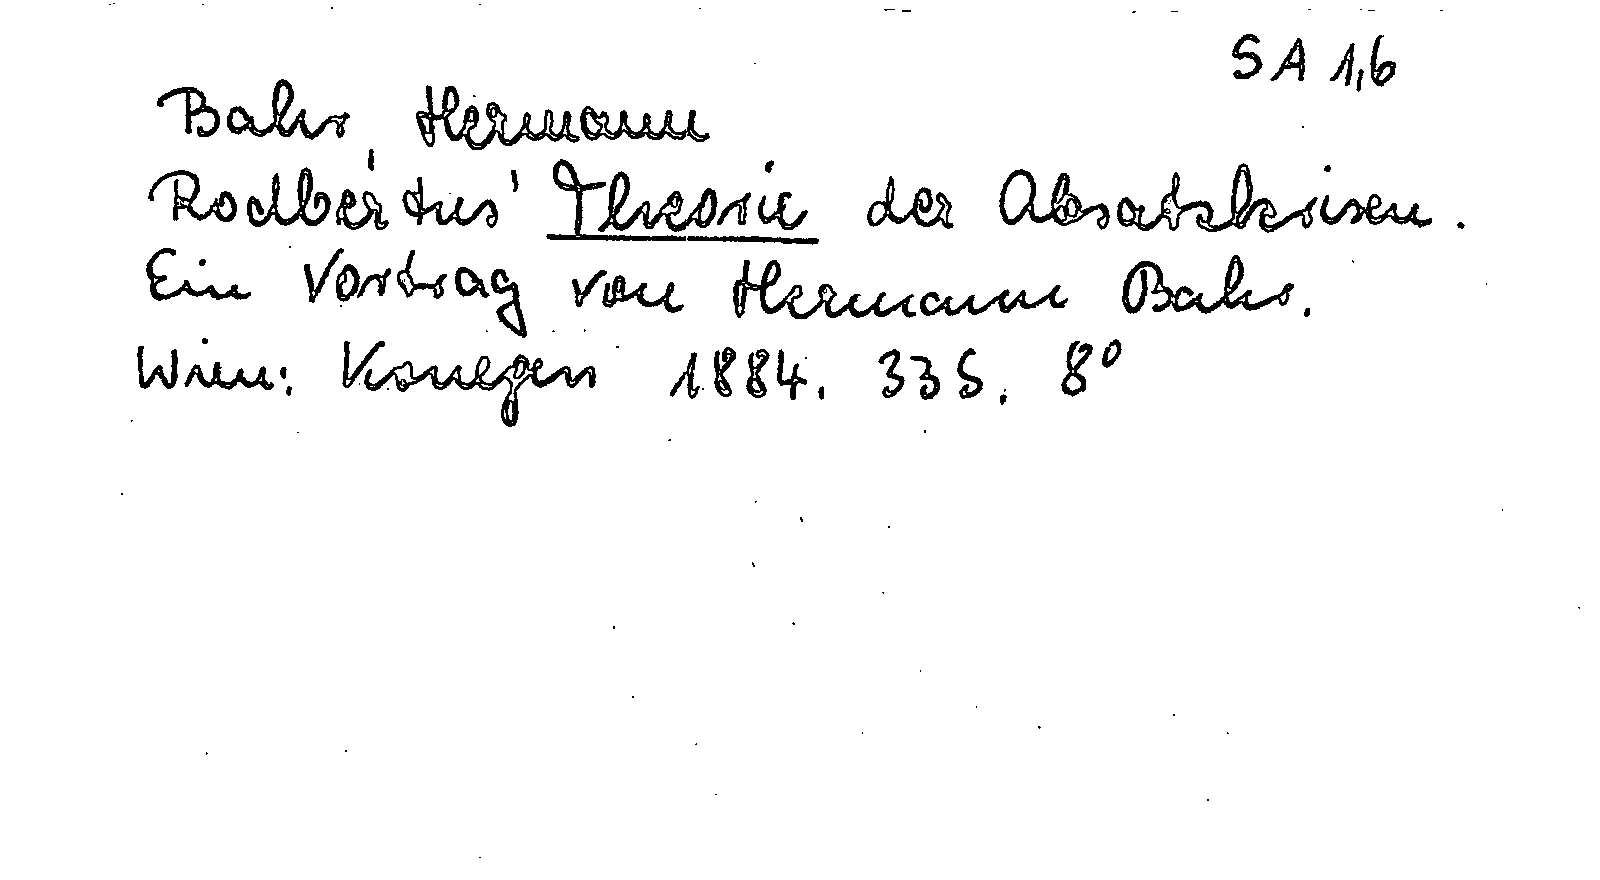 SA 1,6
Bahr, Hermann
Rodbertus' Theorie der Absatzkrisen.
Ein Vortrag von Hermann Bahr.
Wien: Konegen 1884. 33 S. 8°